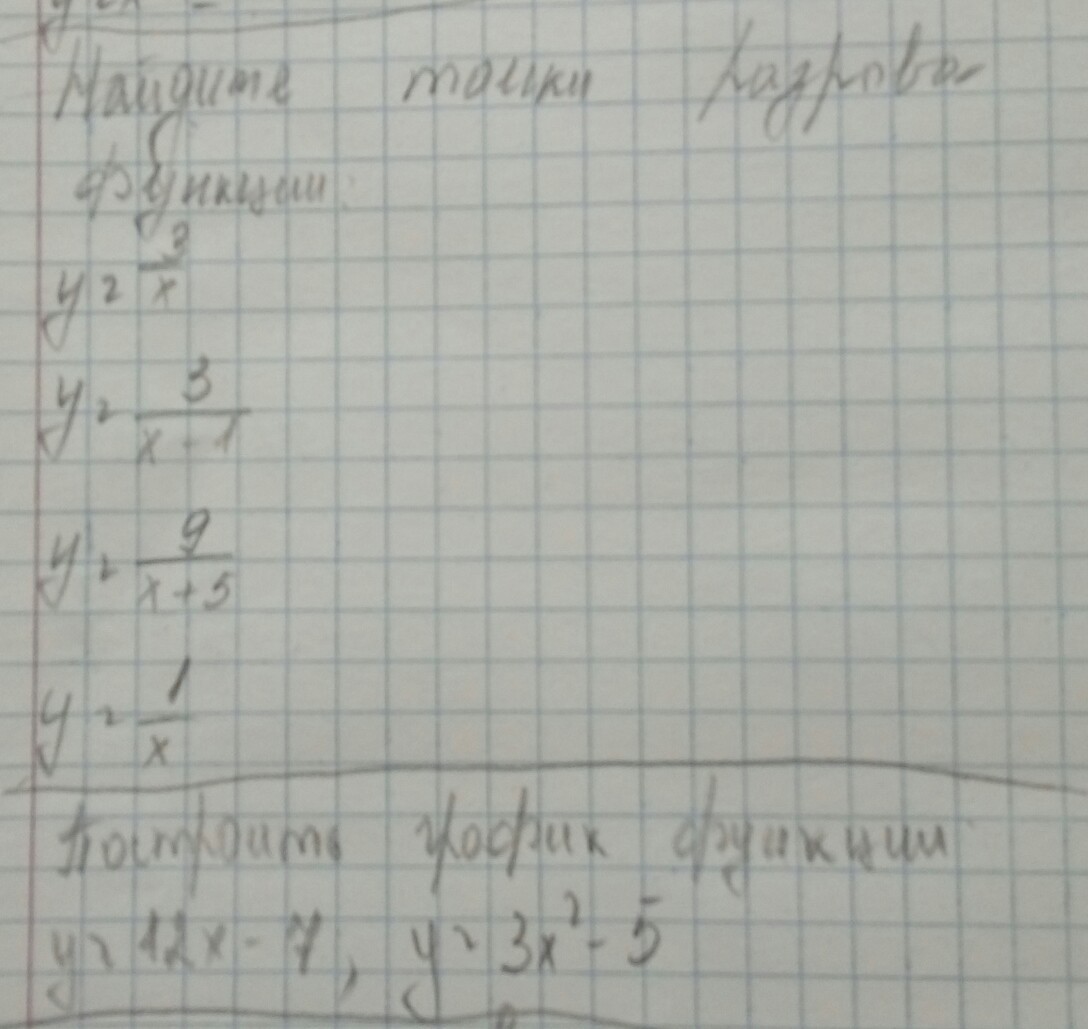 Найдите точки разрыва
функции:
y = 3/x
y = 3/(x - 1)
y = 9/(x + 5)
y = 1/x
Построить график функции
y = 12x - 7, y = 3x² - 5